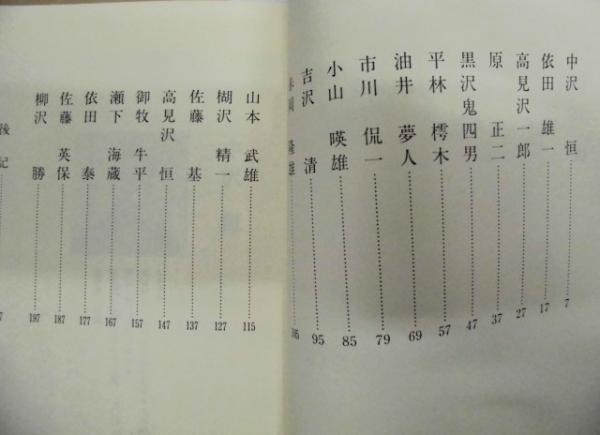 中沢 恒 7
依田 雄一 17
高見沢一郎 27
原 正二 37
黒沢鬼四男 47
平林 樗木 57
油井 夢人 69
市川 侃一 79
小山 暎雄 85
吉沢 清 95
山本 武雄 115
楜沢 精一 127
佐藤 基 137
高見沢 恒 147
御牧 牛平 157
瀬下 海蔵 167
依田 泰 177
佐藤 英保 187
柳沢 勝 197
後記